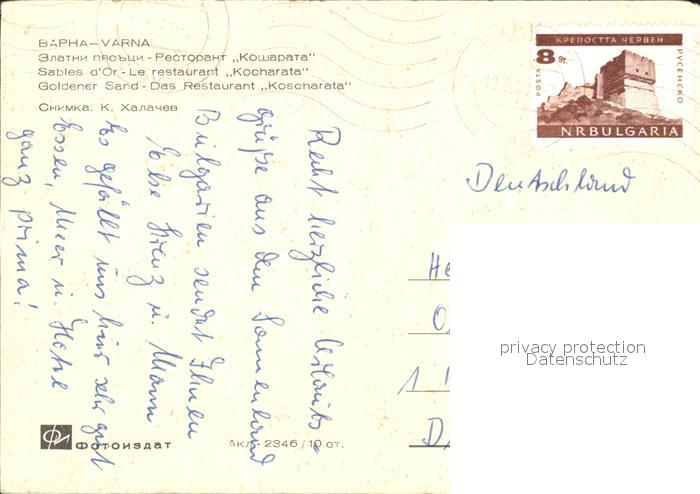 ВАРНА—VARNA
Златни пясъци - Ресторант „Кошарата"
Sables d'Or - Le restaurant „Kocharata"
Goldener Sand - Das Restaurant „Koscharata"
Снимка: К. Халачев
КРЕПОСТТА ЧЕРВЕН
РУСЕНСКО
ПОЩА
8 ст.
NRBULGARIA
Deutschland
Recht herzliche Urlaubs-
grüße aus dem Sonnenland
Bulgarien sendet Ihnen
Else u. Mann
Es gefällt uns hier sehr gut
Essen, Meer u. Hotel
ganz prima!
He
O
1
D
privacy protection
Datenschutz
Фотоиздат
Акл - 2346 / 10 ст.